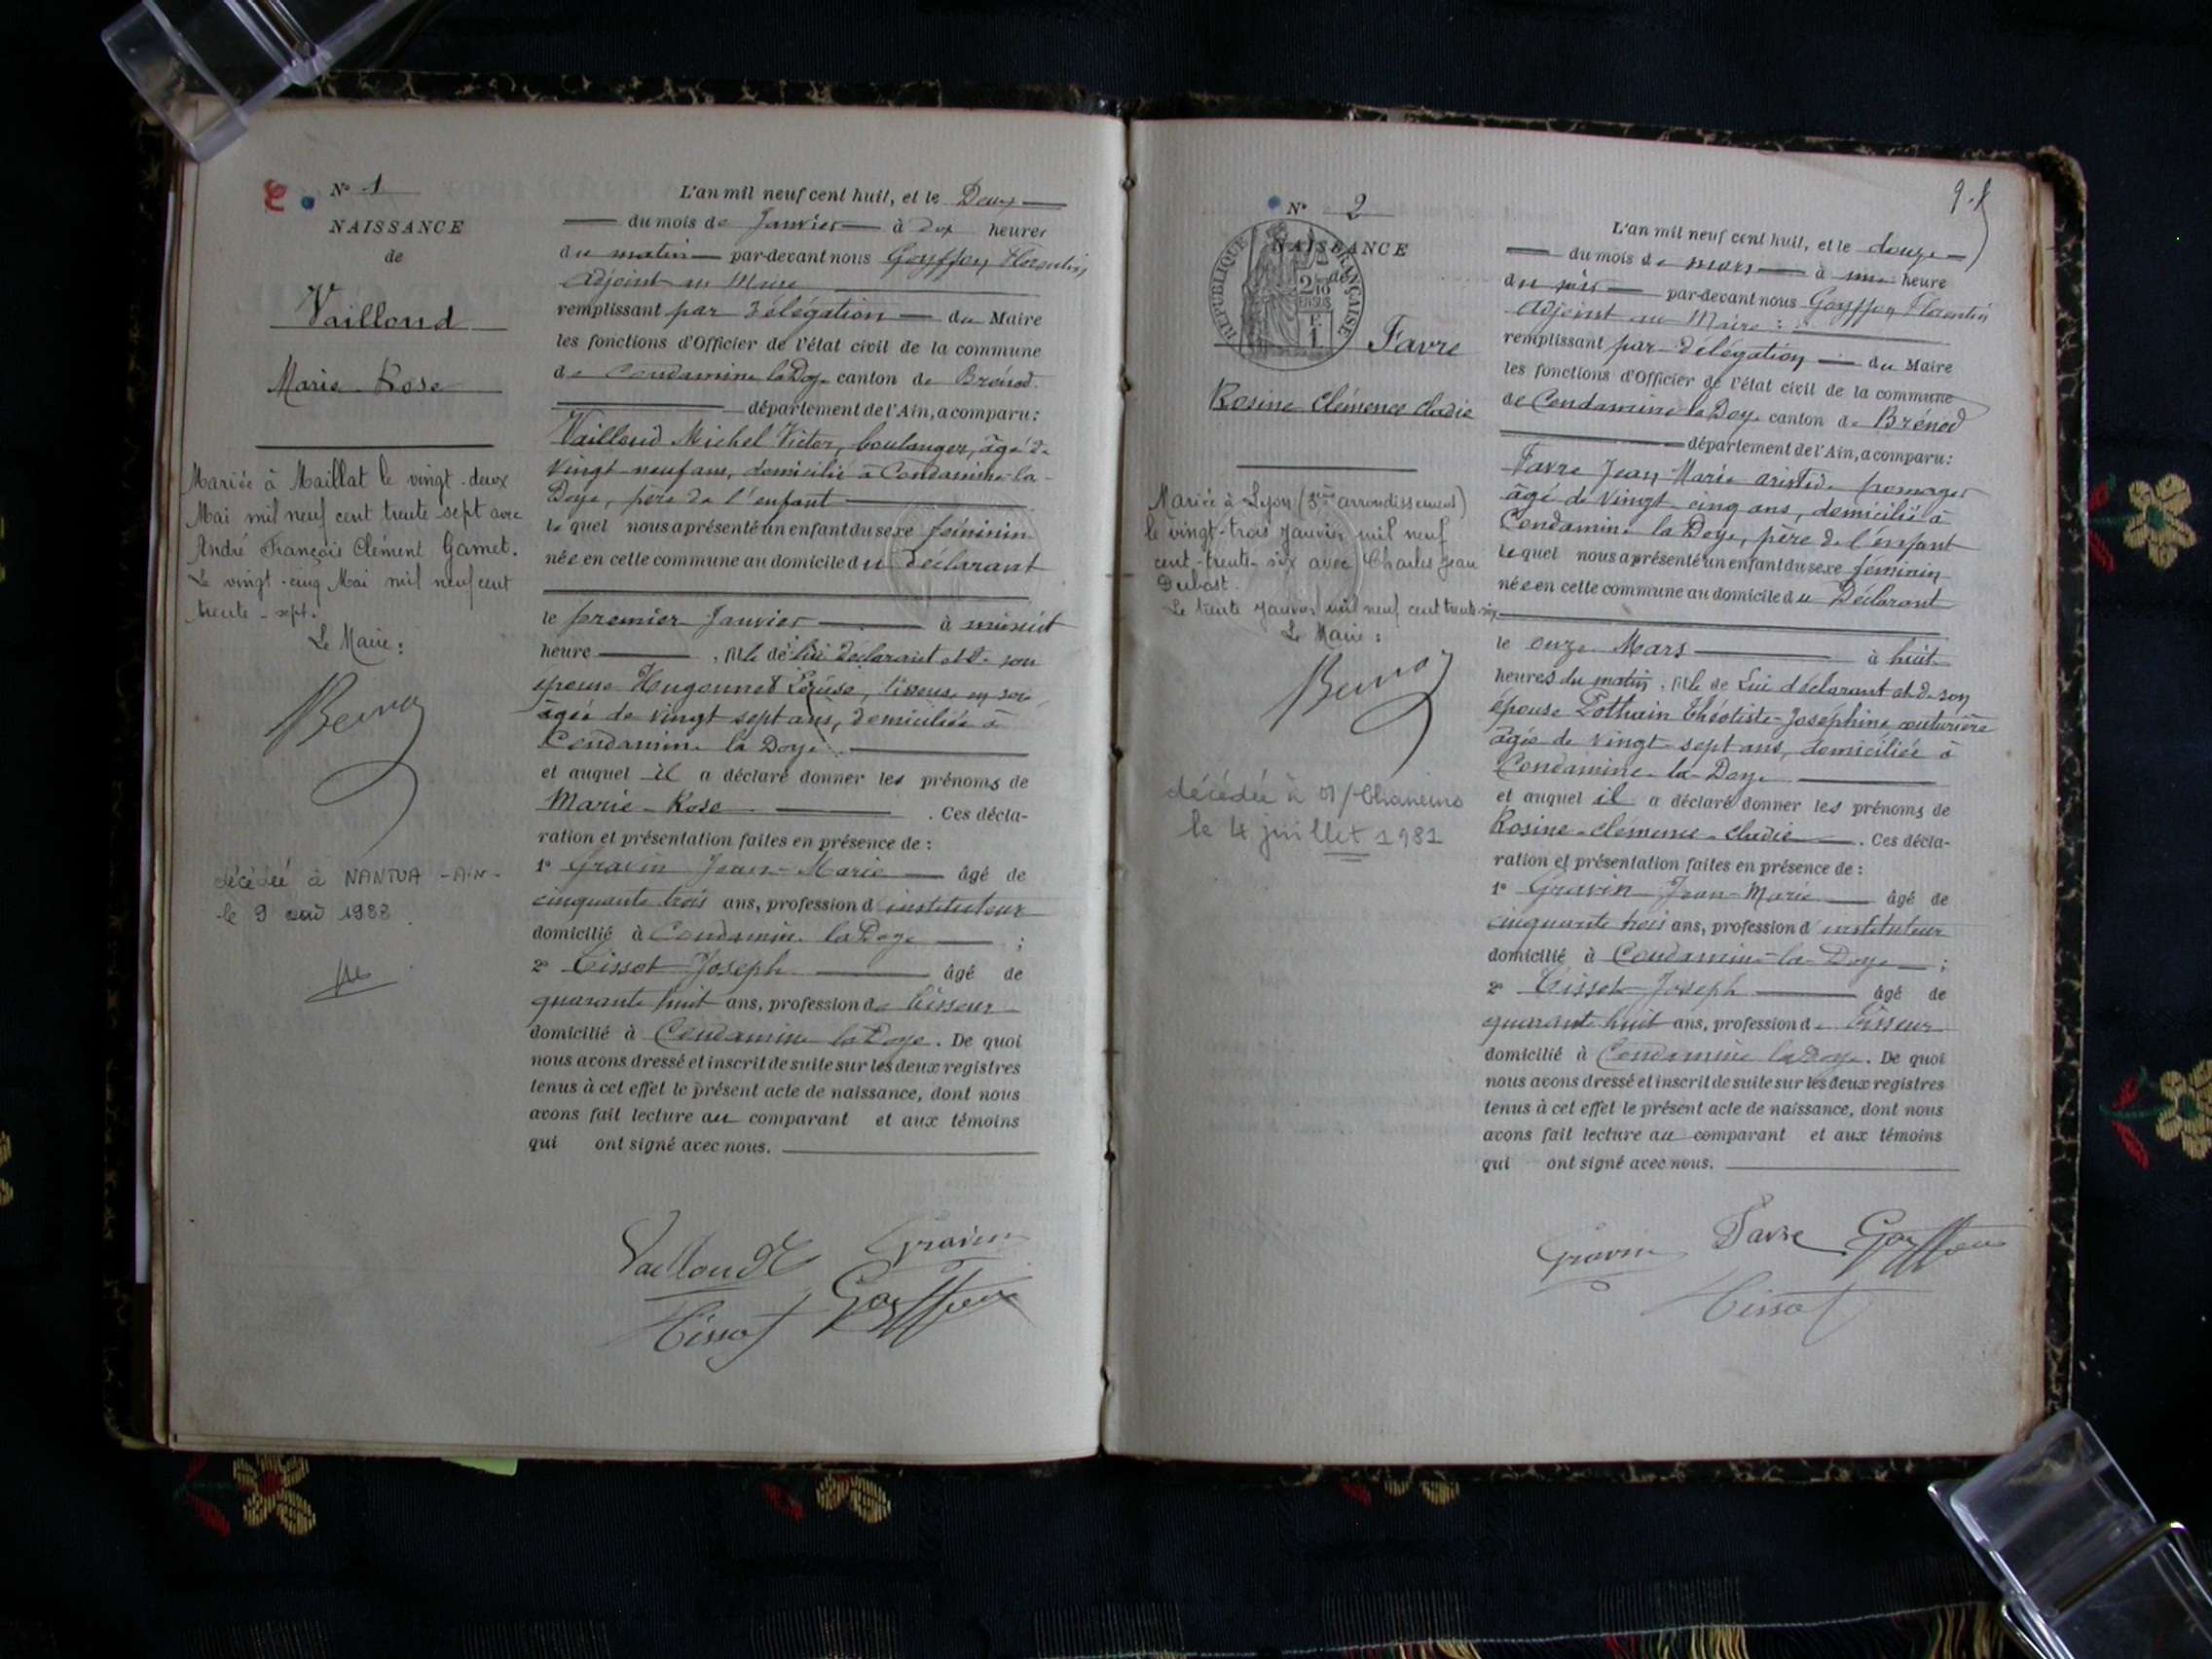 N° 1
NAISSANCE
de
Vailloud
Marie-Rose
Mariée à Maillat le vingt-deux
Mai mil neuf cent trente-sept avec
André François Clément Gamet.
Le vingt-cinq Mai mil neuf cent
trente-sept.
Le Maire :
décédée à NANTUA -AIN-
le 9 1988
L'an mil neuf cent huit, et le Deux
du mois de Janvier à dix heures
du matin par-devant nous Goyffon Florentin
Adjoint au Maire
remplissant par délégation du Maire
les fonctions d'Officier de l'état civil de la commune
de Condamine la Doye canton de Brénod
département de l'Ain, a comparu :
Vailloud Michel Victor, boulanger, âgé de
vingt-neuf ans, domicilié à Condamine-la-
Doye, père de l'enfant
lequel nous a présenté un enfant du sexe féminin
née en cette commune au domicile du déclarant
le premier Janvier à minuit
heure , fille de lui déclarant et de son
épouse Hugonnet Louise, tisseuse en soie
âgée de vingt sept ans, domiciliée à
Condamine la Doye.
et auquel il a déclaré donner les prénoms de
Marie-Rose . Ces décla-
ration et présentation faites en présence de :
1° Gravin Jean-Marie âgé de
cinquante trois ans, profession d'instituteur
domicilié à Condamine la Doye ;
2° Tissot Joseph âgé de
quarante huit ans, profession de tisseur
domicilié à Condamine la Doye. De quoi
nous avons dressé et inscrit de suite sur les deux registres
tenus à cet effet le présent acte de naissance, dont nous
avons fait lecture au comparant et aux témoins
qui ont signé avec nous.
Vailloud Gravin
Tissot Goyffon
9.8
N° 2
NAISSANCE
de
RÉPUBLIQUE FRANÇAISE
2/10
EN SUS
Favre
Rosine Clémence Cladie
Mariée à Lyon (3ème arrondissement)
le vingt-trois Janvier mil neuf
cent-trente-six avec Charles Jean
Dubost.
Le trente Janvier mil neuf cent trente-six
Le Maire :
décédée à St/Chaneins
le 4 juillet 1981
L'an mil neuf cent huit, et le douze
du mois de mars à une heure
du soir par-devant nous Goyffon Florentin
Adjoint au Maire :
remplissant par délégation du Maire
les fonctions d'Officier de l'état civil de la commune
de Condamine la Doye canton de Brénod
département de l'Ain, a comparu :
Favre Jean Marie Aristide fromager
âgé de vingt-cinq ans, domicilié à
Condamine la Doye, père de l'enfant
lequel nous a présenté un enfant du sexe féminin
née en cette commune au domicile du Déclarant
le onze Mars à huit
heures du matin, fille de Lui déclarant et de son
épouse Pothain Théotiste-Joséphine couturière
âgée de vingt-sept ans, domiciliée à
Condamine-la-Doye
et auquel il a déclaré donner les prénoms de
Rosine-clémence-cladie . Ces décla-
ration et présentation faites en présence de :
1° Gravin Jean-Marie âgé de
cinquante trois ans, profession d'instituteur
domicilié à Condamine-la-Doye ;
2° Tissot Joseph âgé de
quarante huit ans, profession de tisseur
domicilié à Condamine la Doye. De quoi
nous avons dressé et inscrit de suite sur les deux registres
tenus à cet effet le présent acte de naissance, dont nous
avons fait lecture au comparant et aux témoins
qui ont signé avec nous.
Gravin Favre Goyffon
Tissot